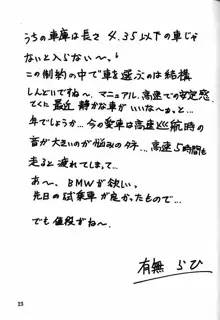 うちの車庫は長さ 4.35以下の車じゃ
ないと入らない〜。
この制約の中で車を選ぶのは結構
しんどいですね〜。マニュアル、高速での安定感、
てくに最近 静かな車がいいな〜。っと…
年でしょうか… 今の愛車は高速巡航時の
音が大きいのが悩みのタネ… 高速5時間も
走ると疲れてしまって…
あ〜、BMWが欲しい。
先日の試乗車が良かったもので…
でも値段がね〜
有無 らひ
23